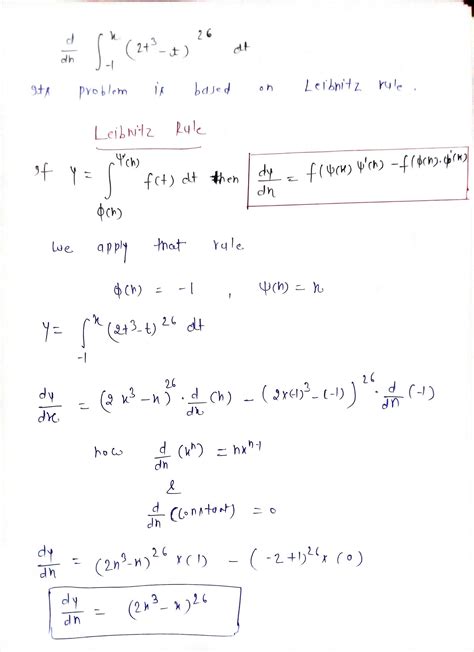 d/dx ∫₋₁ˣ (2t³ - t)²⁶ dt
Its problem is based on Leibnitz rule.
Leibnitz Rule
If y = ∫_{ϕ(x)}^{ψ(x)} f(t) dt then dy/dx = f(ψ(x)) ψ'(x) - f(ϕ(x)).ϕ'(x)
we apply that rule
ϕ(x) = -1 , ψ(x) = x
y = ∫₋₁ˣ (2t³ - t)²⁶ dt
dy/dx = (2x³ - x)²⁶ . d/dx (x) - (2x(-1)³ - (-1))²⁶ . d/dx (-1)
now d/dx (xⁿ) = nxⁿ⁻¹
&
d/dx (constant) = 0
dy/dx = (2x³ - x)²⁶ x (1) - (-2+1)²⁶ x (0)
dy/dx = (2x³ - x)²⁶